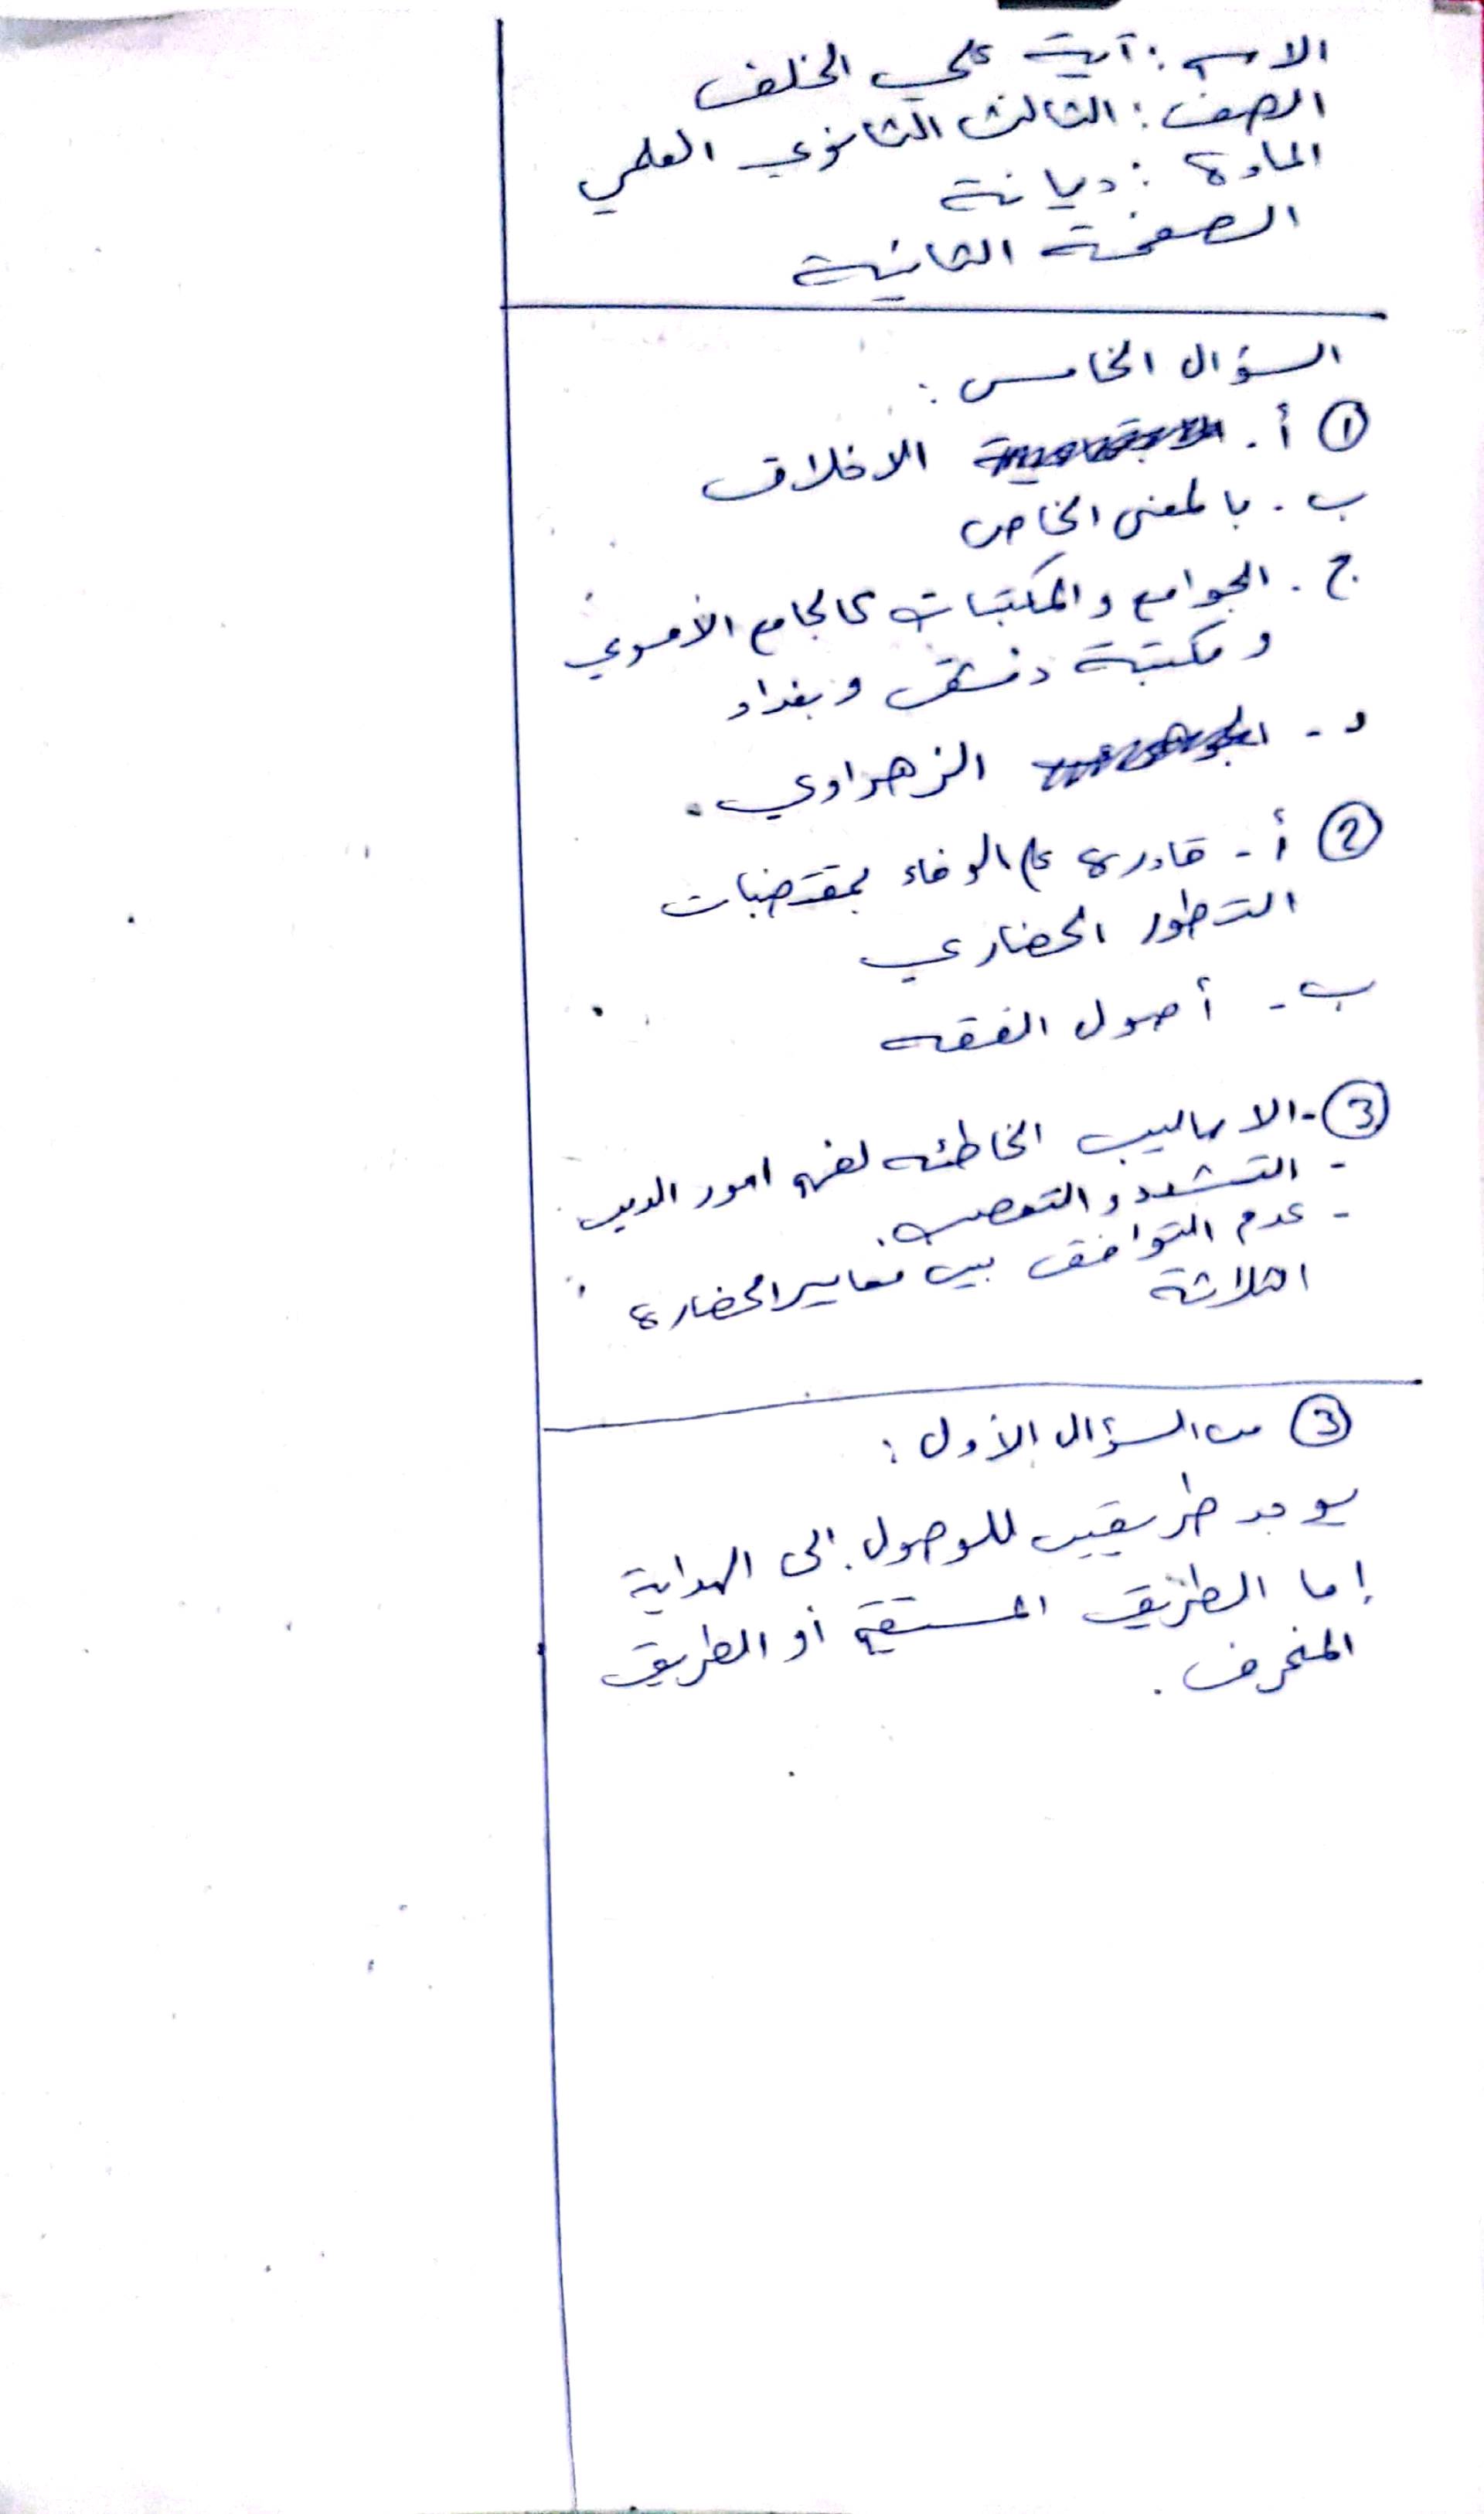 الاسم : آية علي الخلف
الصف : الثالث الثانوي العلمي
المادة : ديانة
الصفحة الثانية
السؤال الخامس :
① أ . الاخلاق
ب . بالمعنى الخاص
ج . الجوامع والمكتبات كالجامع الأموي
ومكتبة دمشق وبغداد
د - الزهراوي .
② أ - قادرة على الوفاء بمقتضيات
التطور الحضاري
ب - أصول الفقه
③ - الاساليب الخاطئه لفهم امور الدين
- التشدد والتعصب .
- عدم التوافق بين معايير الحضارة
الثلاثة
③ من السؤال الأول :
يوجد طريقين للوصول إلى الهداية
إما الطريق المستقيم أو الطريق
المنحرف .